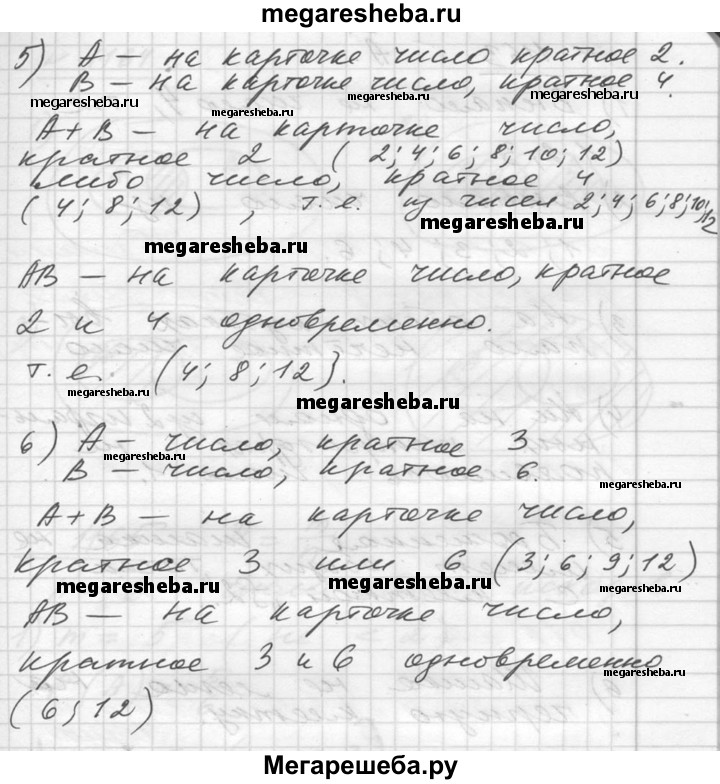 megaresheba.ru
5) А — на карточке число кратное 2.
В — на карточке число, кратное 4.
megaresheba.ru megaresheba.ru megaresheba.ru
А+В — на карточке число,
кратное 2 (2; 4; 6; 8; 10; 12)
либо число, кратное 4
(4; 8; 12) , т.е. из чисел 2; 4; 6; 8; 10; 12
megaresheba.ru
megaresheba.ru
АВ — на карточке число, кратное
2 и 4 одновременно.
т. е. (4; 8; 12).
megaresheba.ru
megaresheba.ru
6) А — число, кратное 3
В — число, кратное 6.
megaresheba.ru
megaresheba.ru
А+В — на карточке число,
кратное 3 или 6 (3; 6; 9; 12)
megaresheba.ru megaresheba.ru megaresheba.ru
АВ — на карточке число,
кратное 3 и 6 одновременно
megaresheba.ru
(6; 12)
Мегарешеба.ру